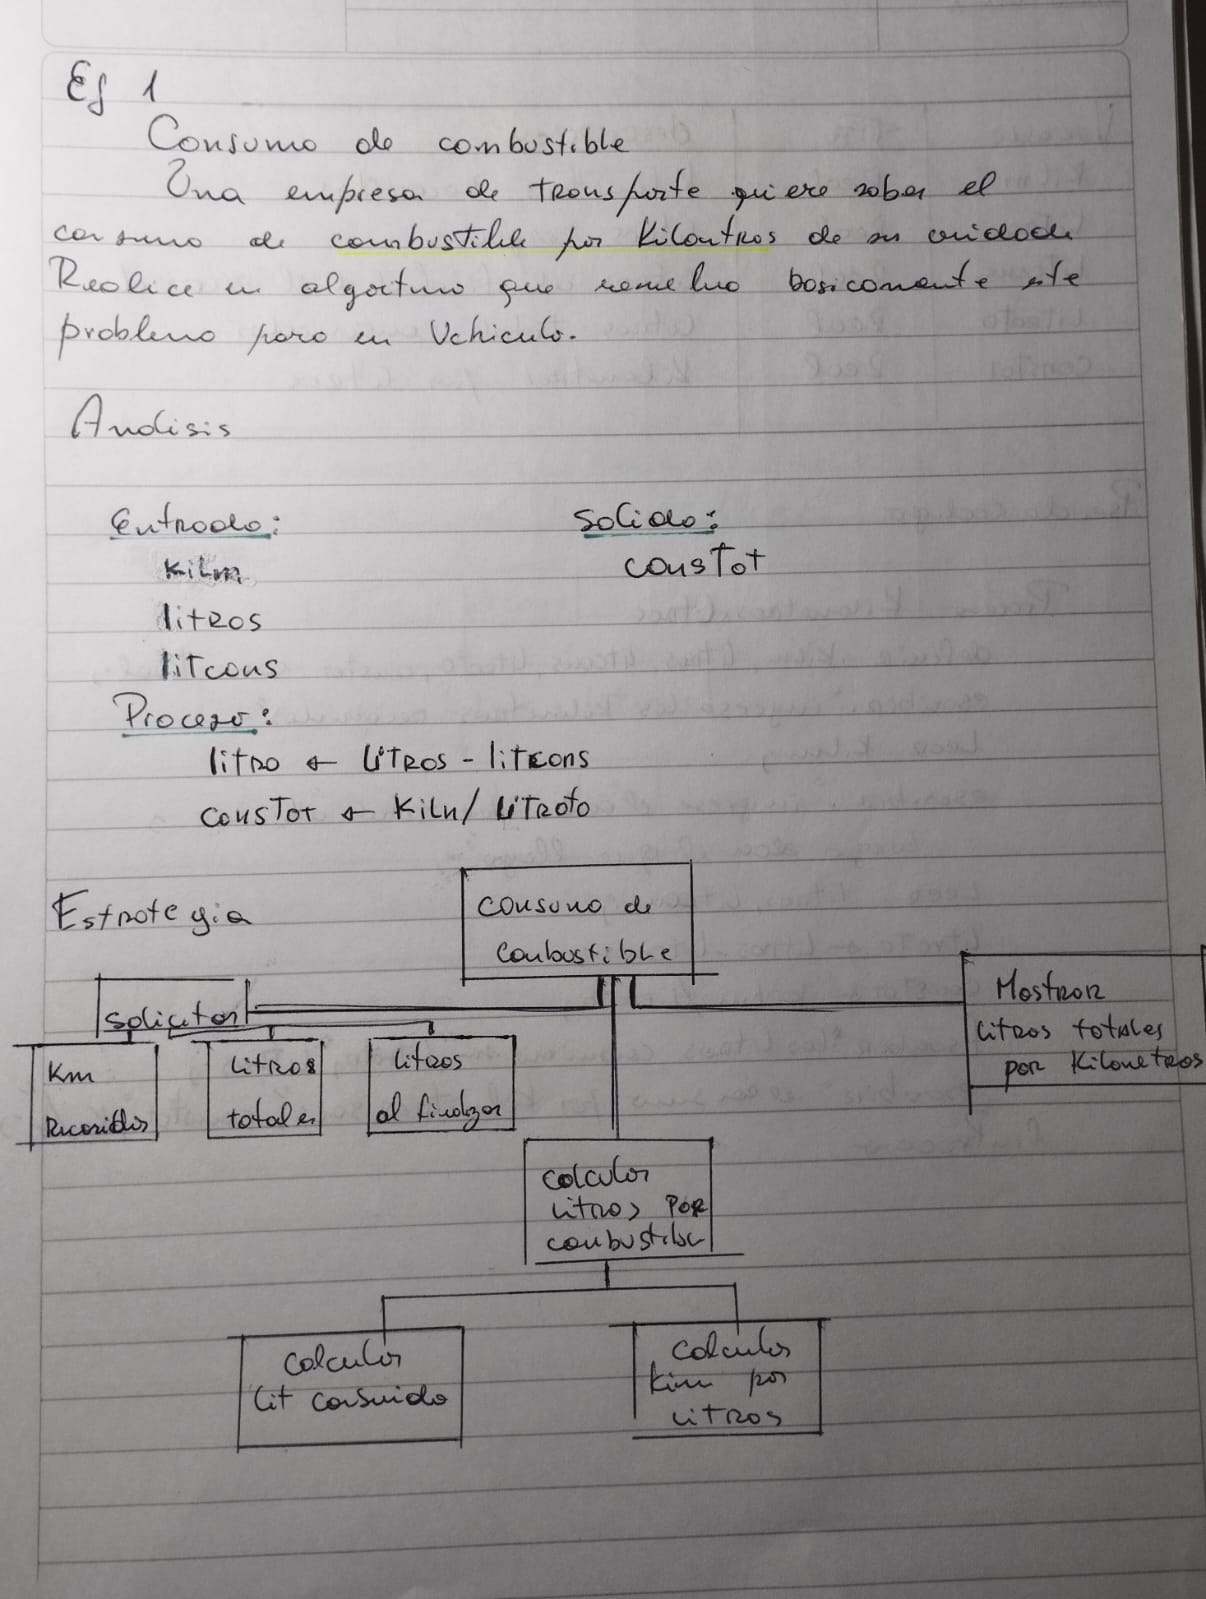 Ej 1
Consumo de combustible
Una empresa de transporte quiere saber el
consumo de combustible por Kilomtros de su unidade
Realice un algoritmo que resuelva basicamente este
problema para un Vehiculo.
Analisis
Entrada: Salida:
Kilm consTot
litros
litcons
Proceso:
litro ← LiTROS - litcons
consTot ← Kilm / LiTRoto
Estrategia
consumo de
combustible
solicitar
Km
Recorridos
Litros
totales
Litros
al finalizar
Mostrar
Litros totales
por Kilometros
calcular
Litros por
combustible
calcular
Lit consuido
calcular
kim por
Litros